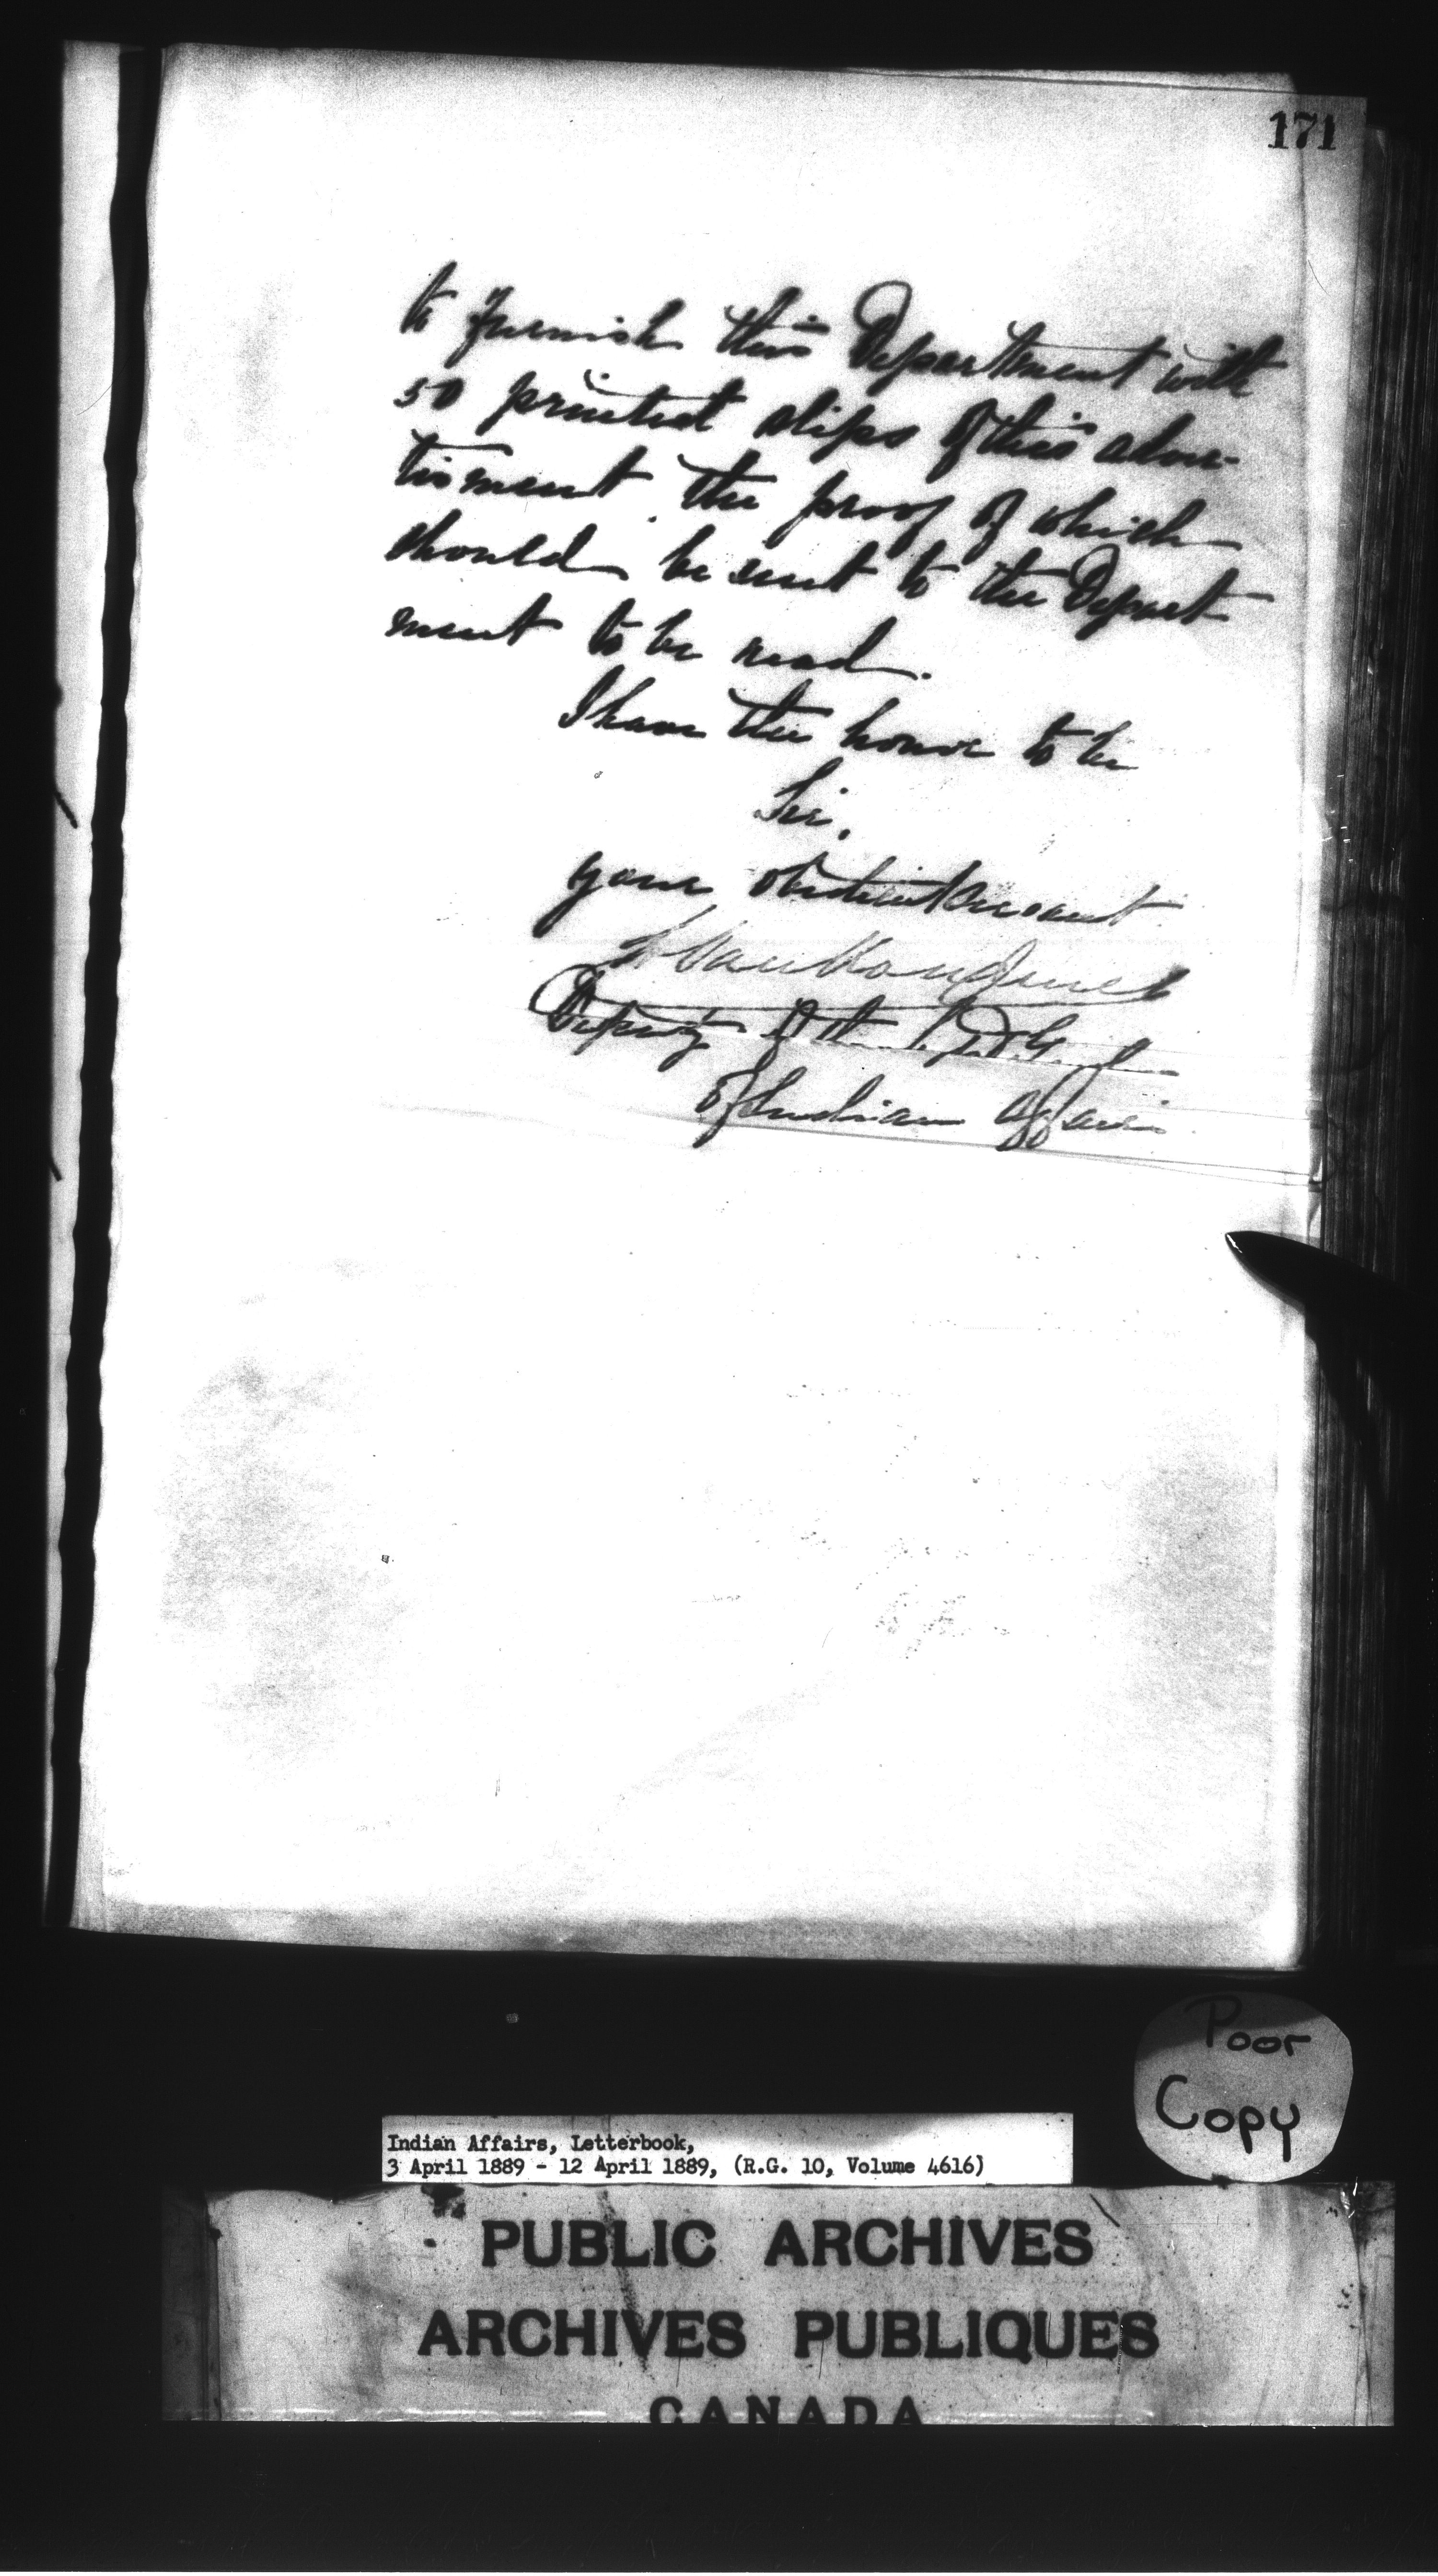 171
to furnish this Department with
50 printed slips of this adver-
tisment the proof of which
should be sent to the Depart
ment to be read.
I have the honor to be
Sir,
your obedient servant
L Vankoughnet
Deputy of the Supt. Genl
of Indian Affairs
Poor
Copy
Indian Affairs, Letterbook,
3 April 1889 - 12 April 1889, (R.G. 10, Volume 4616)
PUBLIC ARCHIVES
ARCHIVES PUBLIQUES
CANADA